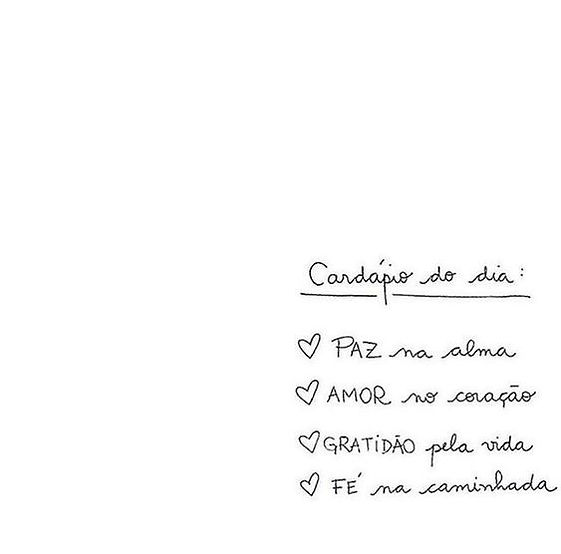 Cardápio do dia:
♡ PAZ na alma
♡ AMOR no coração
♡ GRATIDÃO pela vida
♡ FÉ na caminhada